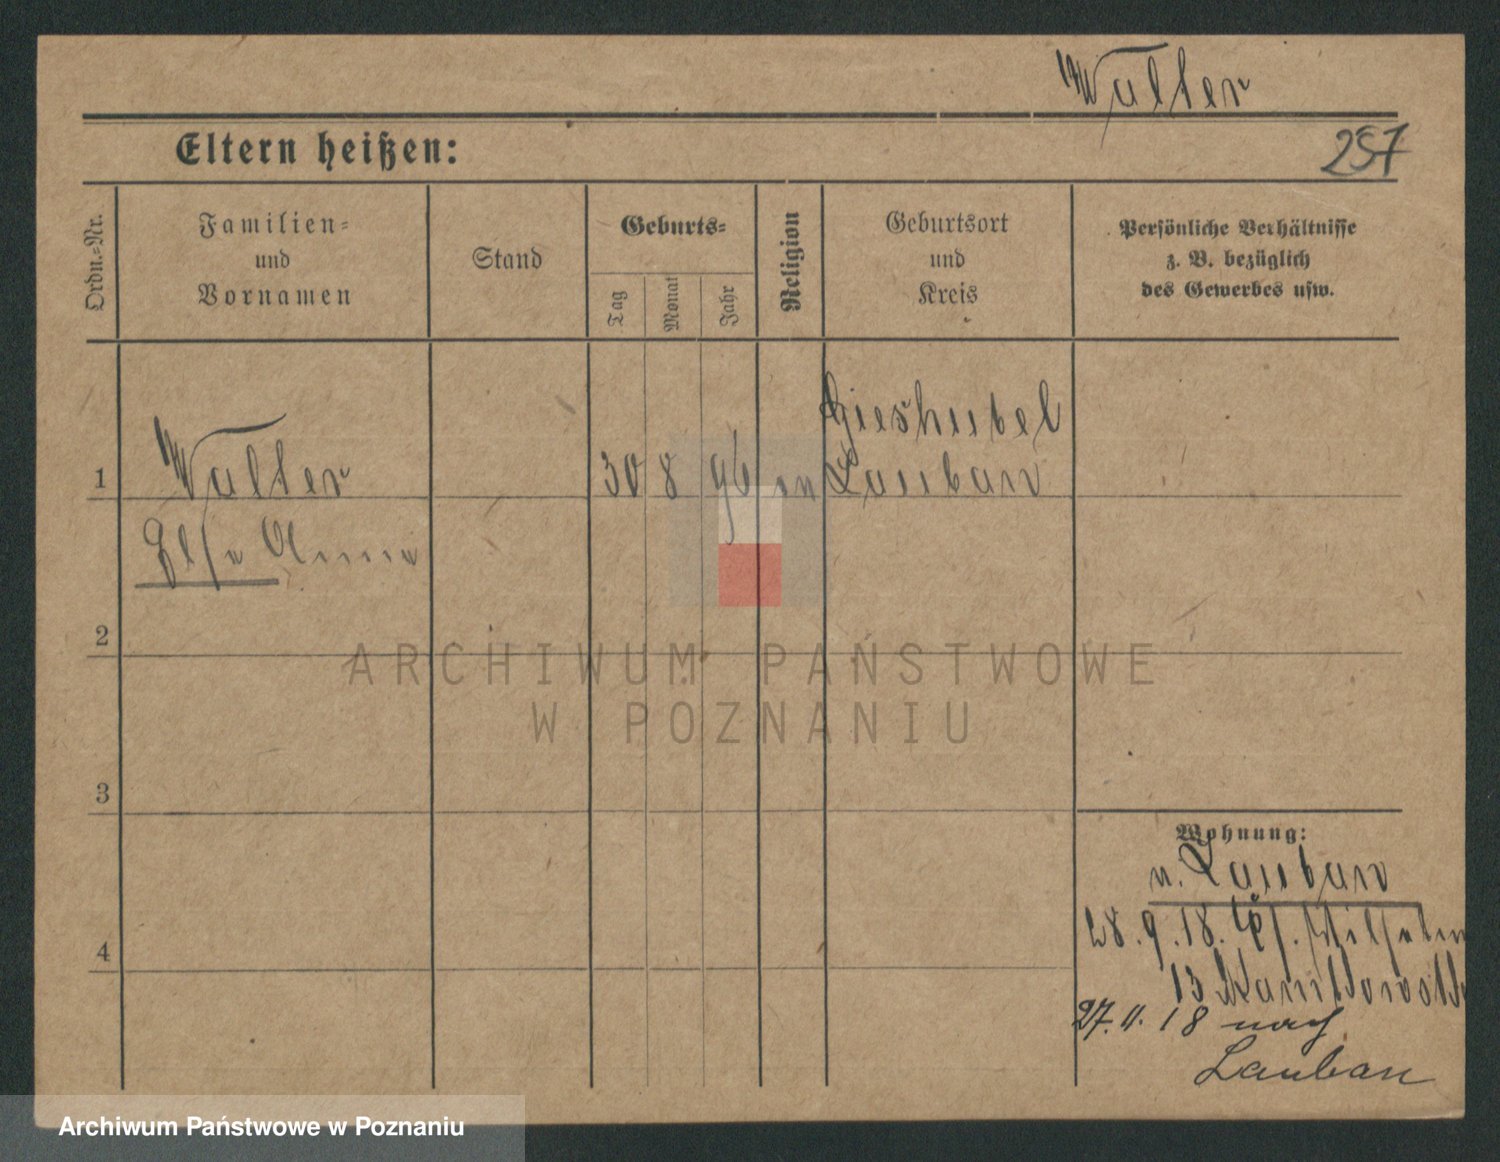 Walter
Eltern heißen:
257
Ordn.-Nr.
Familien-
und
Vornamen
Stand
Geburts-
Tag
Monat
Jahr
Religion
Geburtsort
und
Kreis
Persönliche Verhältnisse
z. B. bezüglich
des Gewerbes usw.
1
Walter
30 8 96
Lauban
Else Anna
2
3
4
ARCHIWUM PAŃSTWOWE
W POZNANIU
Wohnung:
v. Lauban
28.9.18.
13
27.11.18 nach
Lauban
Archiwum Państwowe w Poznaniu